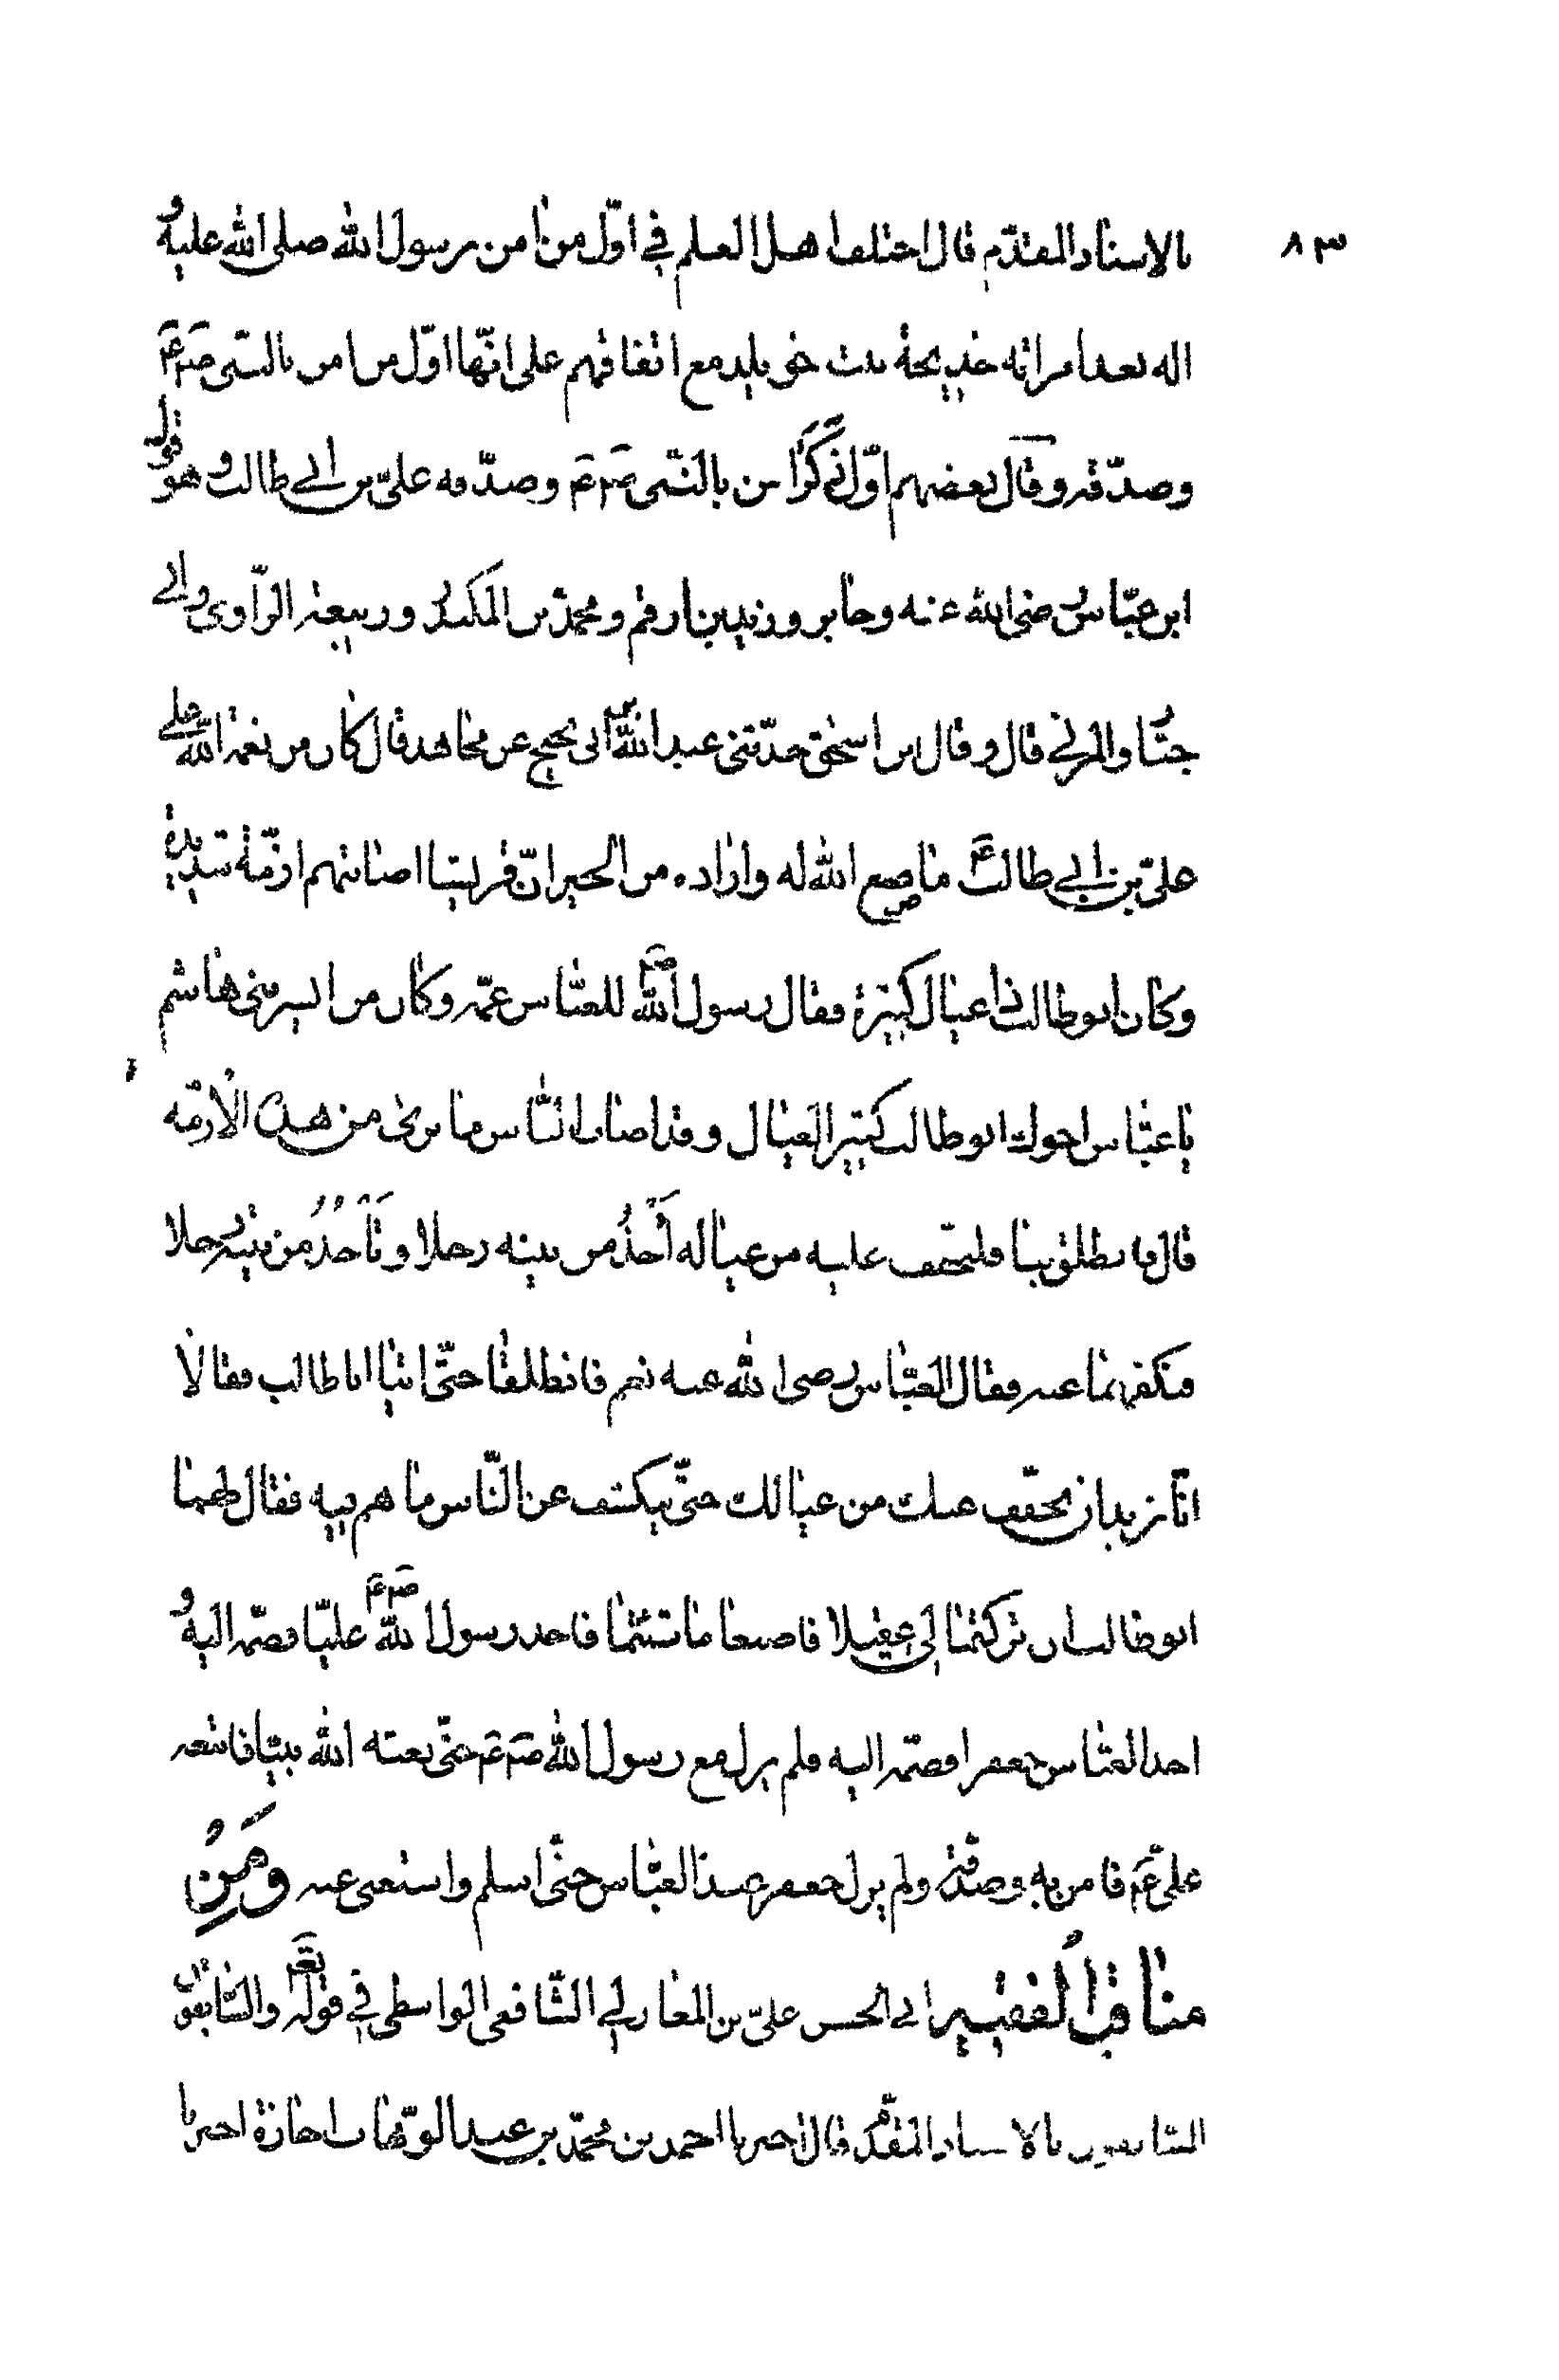 ٨٣
بالاسناد المقدّم قال اختلف اهل العلم في اوّل من امن برسول الله صلى الله عليه و
اله بعد امراته خديجة بنت خويلد مع اتفاقهم على انّها اوّل من امن بالنبى صم عم
وصدّقه وقال بعضهم اوّل ذَكَرٍ امن بالنّبى صم عم وصدّقه علىّ بن ابي طالب وهو قول
ابن عبّاس رضى الله عنه وجابر وزيد بن ارقم ومحمّد بن المنكدر وربيعة الرّاوى وابي
حيّان والمزني قال وقال ابن اسحق حدّثنى عبد الله بن ابى نجيح عن مجاهد قال كان من نعمة الله على
علىّ بن ابي طالب عم ما صنع الله له واراده من الخير انّ قريشا اصابتهم ازمّة شديدة
وكان ابو طالب ذا عيال كثيرة فقال رسول الله صم للعبّاس عمّه وكان من ايسر بنى هاشم
يا عبّاس اخوك ابو طالب كثير العيال وقد اصاب النّاس ما ترى من هذه الازمّة
قال فانطلق بنا فليخفف عليه من عياله آخُذُ من بيته رجلا وتَأْخُذُ من بيته رجلا
فنكفهما عنه فقال العبّاس رضى الله عنه نعم فانطلقا حتّى اتيا ابا طالب فقالا
انّا نريد ان نخفّف عنك من عيالك حتّى ينكشف عن النّاس ما هم فيه فقال لهما
ابو طالب ان تركتما لى عقيلا فاصنعا ما شئتما فاخذ رسول الله صم عم عليّا فضمّه اليه و
اخذ العبّاس جعفرا فضمّه اليه فلم يزل مع رسول الله صم عم حتّى بعثه الله نبيّا فاتبعه
علىّ عم فامن به وصدّقه ولم يزل جعفر عند العبّاس حتّى اسلم واستغنى عنه وَمِنْ
مناقب الفقيه ابي الحسن علىّ بن المغازلي الشّافعى الواسطى في قوله تعالى والسّابقون
السّابقون بالاسناد المقدّم قال اخبرنا احمد بن محمّد بن عبد الوهّاب اجازة اخبرنا